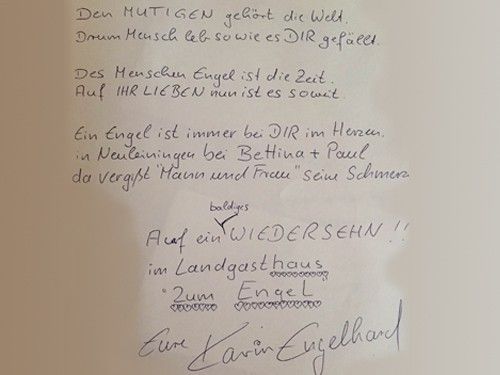 Den MUTIGEN gehört die Welt.
Drum Mensch leb so wie es DIR gefällt.
Des Menschen Engel ist die Zeit.
Auf IHR LIEBEN nun ist es soweit.
Ein Engel ist immer bei DIR im Herzen.
in Neuleiningen bei Bettina + Paul
da vergißt "Mann und Frau" seine Schmerz
baldiges
Auf ein WIEDERSEHN !!
im Landgasthaus
"Zum Engel"
Eure Karin Engelhard